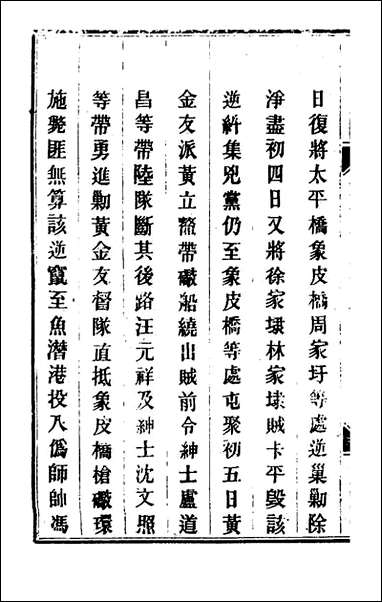 日復將太平橋象皮橋周家圩等處逆巢勦除
淨盡初四日又將徐家埭林家埭賊卡平毀該
逆糾集兇黨仍至象皮橋等處屯聚初五日黃
金友派黃立鼇帶礮船繞出賊前令紳士盧道
昌等帶陸隊斷其後路汪元祥及紳士沈文照
等帶勇進勦黃金友督隊直抵象皮橋槍礮環
施斃匪無算該逆竄至魚潛港投入僞師帥馮